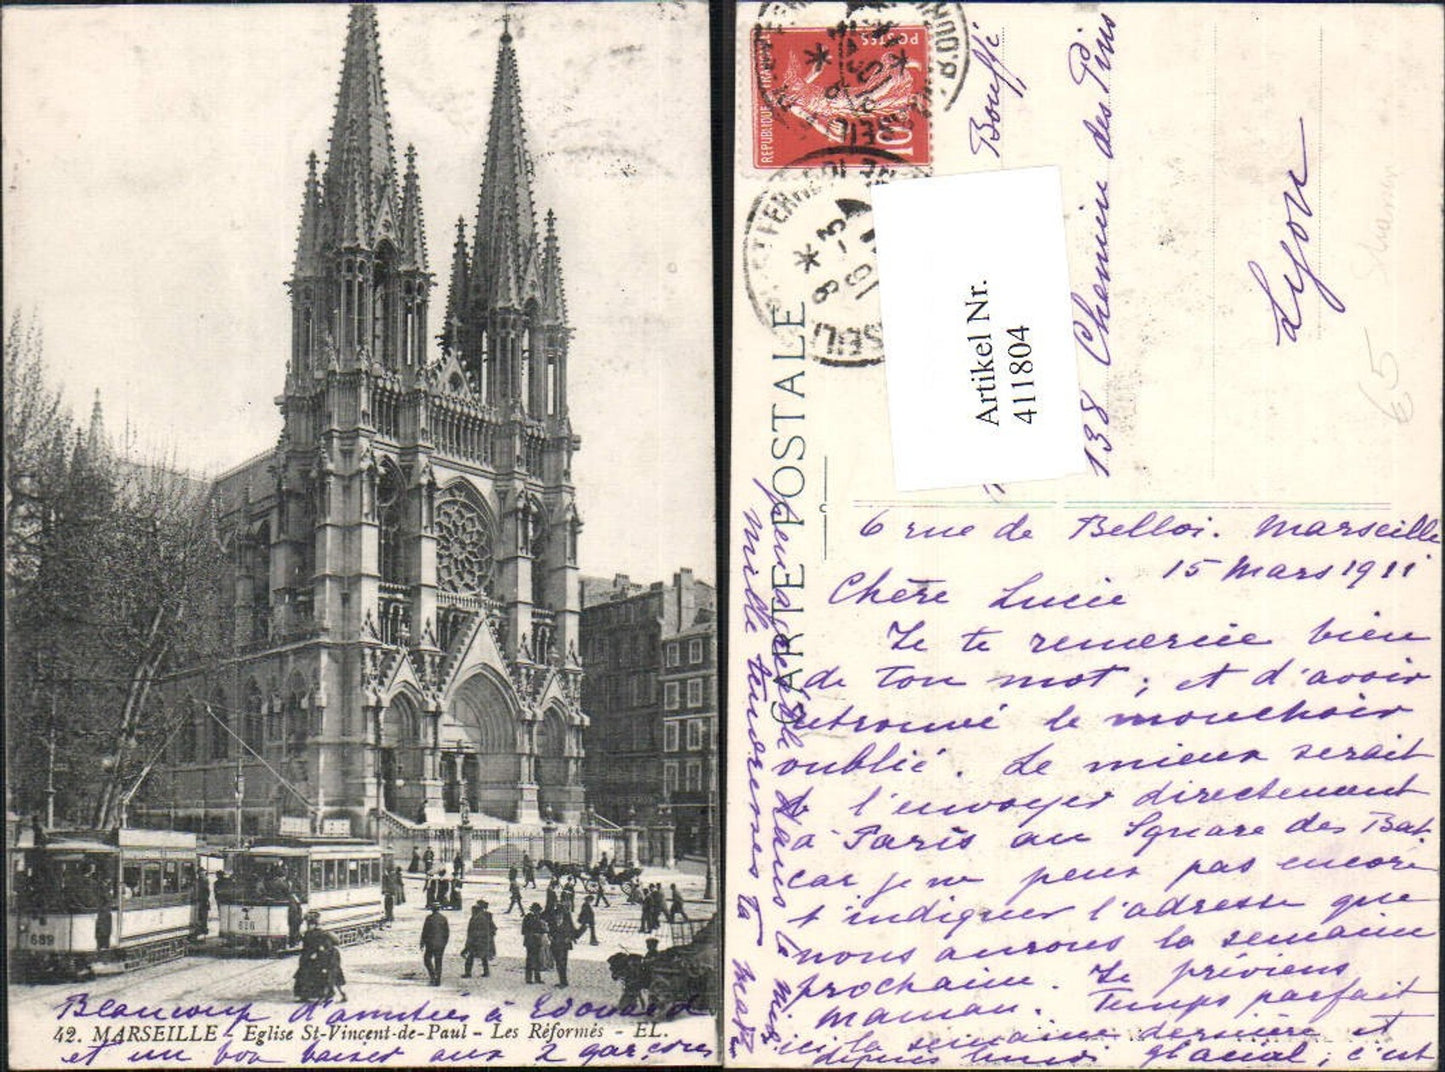 Beaucoup d'amitiés à Edouard
42. MARSEILLE - Eglise St-Vincent-de-Paul - Les Réformés - EL.
et un bon baiser aux 2 garçons
689
REPUBLIQUE FRANÇAISE
POSTES
10
CARTE POSTALE
Artikel Nr.
411804
Bouffé
138 Chemin des Pins
Lyon
65
6 rue de Belloi. Marseille
15 Mars 1911
Chère Lucie
Je te remercie bien
de ton mot ; et d'avoir
retrouvé le mouchoir
oublié. Le mieux serait
de l'envoyer directement
à Paris au Square des Bat.
car je ne peux pas encore
t'indiquer l'adresse que
nous aurons la semaine
prochaine. Je préviens
maman. Temps parfait
ici la semaine dernière et
depuis lundi glacial ; c'est
peu agréable dans le midi
mille tendresses ta